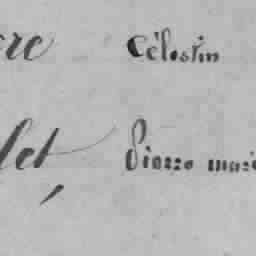 ere Célestin
let, Pierre mari